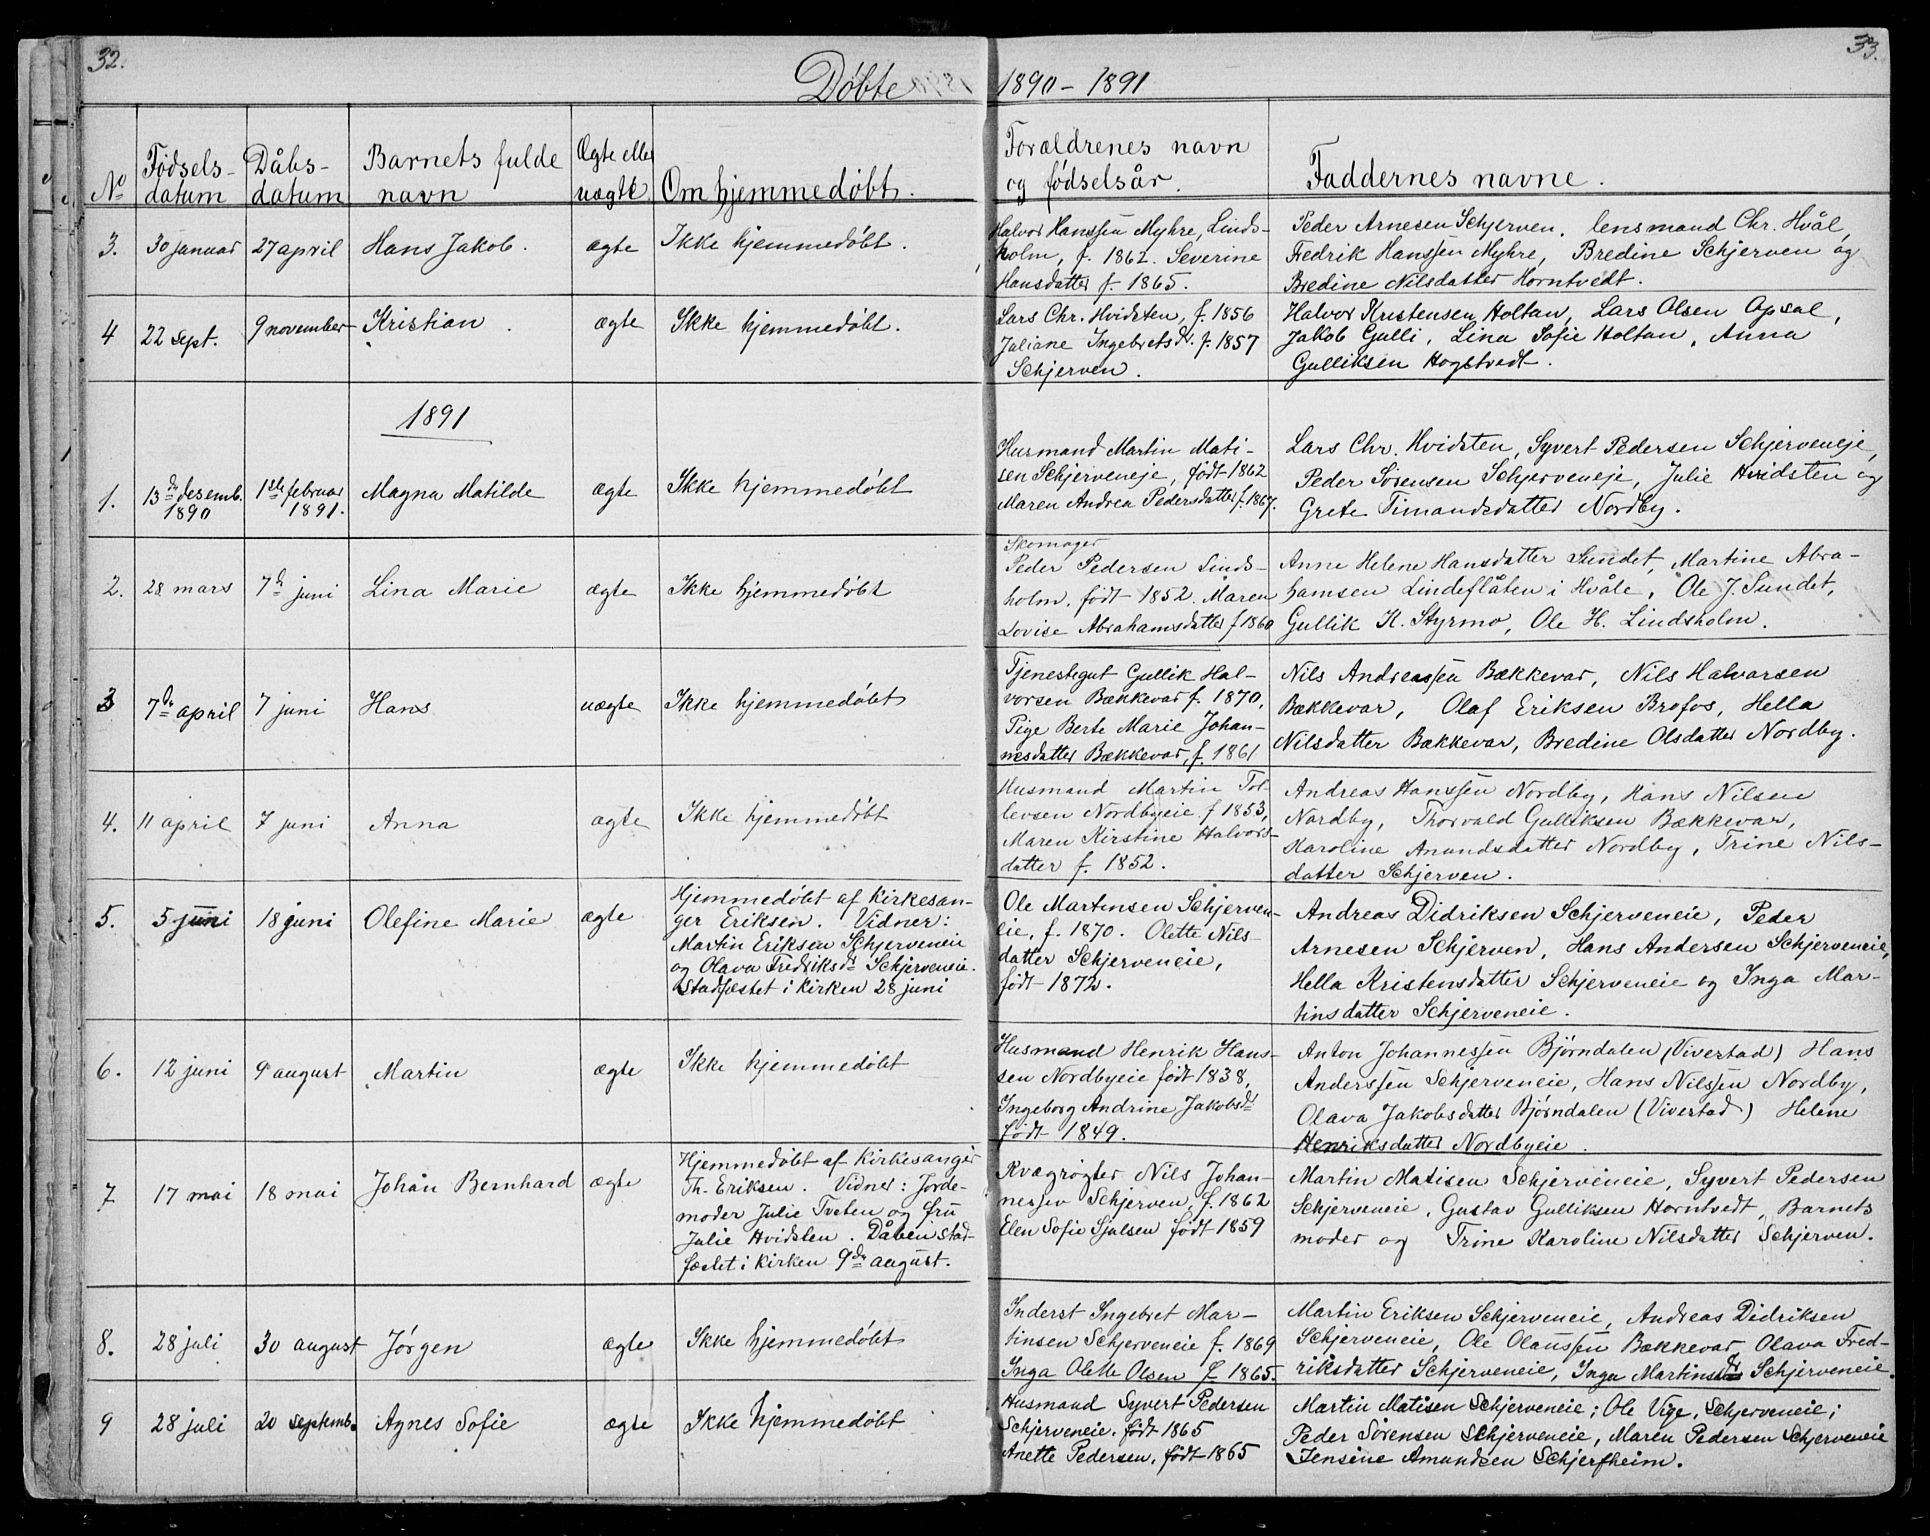 32.
33.
Døbte 1890 – 1891
No
Fødsels-
datum
Dåbs-
datum
Barnets fulde
navn
Ægte eller
uægte
Om hjemmedøbt.
Forældrenes navn
og fødselsår.
Faddernes navne.
3. 30 januar 27 april Hans Jakob. ægte Ikke hjemmedøbt.
Halvor Hanssen Myhre, Linds-
holm, f. 1862. Severine
Hansdatter f. 1865.
Peder Arnesen Schjerven, lensmand Chr. Hvål,
Fredrik Hanssen Myhre, Bredine Schjerven og
Bredine Nilsdatter Horntvedt.
4 22 sept. 9 november Kristian. ægte Ikke hjemmedøbt.
Lars Chr. Hvidsten, f. 1856
Juliane Ingebretsdr. f. 1857
Schjerven.
Halvor Kristensen Holtan, Lars Olsen Opsal,
Jakob Gulli, Lina Sofie Holtan, Anna
Gulliksen Hogstvedt.
1891
1. 13de desemb. 1890 1ste februar 1891. Magna Matilde ægte Ikke hjemmedøbt
Husmand Martin Mati-
sen Schjerveneje, født 1862
Maren Andrea Pedersdatter f. 1867.
Lars Chr. Hvidsten, Syvert Pedersen Schjerveneje,
Peder Sørensen Schjerveneje, Julie Hvidsten og
Grete Timandsdatter Nordby.
2. 28 mars 7de juni Lina Marie ægte Ikke hjemmedøbt
Skomager
Peder Pedersen Linds-
holm, født 1852. Maren
Lovise Abrahamsdatter f 1860
Anne Helene Hansdatter Sundet, Martine Abra-
hamsen Lindeflåten i Hvåle, Ole J. Sundet,
Gullik K. Styrmo, Ole H. Lindsholm.
3 7de april 7 juni Hans uægte Ikke hjemmedøbt
Tjenestegut Gullik Hal-
vorsen Bækkevar f. 1870,
Pige Berte Marie Johan-
nesdatter Bækkevar, f. 1861
Nils Andreassen Bækkevar, Nils Halvorsen
Bækkevar, Olaf Eriksen Brofos, Hella
Nilsdatter Bækkevar, Bredine Olsdatter Nordby.
4. 11 april 7 juni Anna ægte Ikke hjemmedøbt
Husmand Martin Tol-
levsen Nordbyeie f 1853,
Maren Kirstine Halvors-
datter f. 1852.
Andreas Hanssen Nordby, Hans Nilsen
Nordby, Thorvald Gulliksen Bækkevar,
Karoline Anundsdatter Nordby, Trine Nils-
datter Schjerven.
5. 5 juni 18 juni Olefine Marie ægte
Hjemmedøbt af Kirkesan-
ger Eriksen. Vidner:
Martin Eriksen Schjerveneie
og Olava Fredriksdr Schjerveneie.
Stadfæstet i kirken 28 juni
Ole Martinsen Schjerven-
eie, f. 1870. Olette Nils-
datter Schjerveneie,
født 1872.
Andreas Didriksen Schjerveneie, Peder
Arnesen Schjerven, Hans Andersen Schjerveneie,
Hella Kristensdatter Schjerveneie og Inga Mar-
tinsdatter Schjerveneie.
6. 12 juni 9 august Martin ægte Ikke hjemmedøbt
Husmand Henrik Hans-
sen Nordbyeie født 1838,
Ingeborg Andrine Jakobsdr
født 1849.
Anton Johannessen Bjørndalen (Vivestad) Hans
Anderssen Schjerveneie, Hans Nilssen Nordby,
Olava Jakobsdatter Bjørndalen (Vivestad) Helene
Henriksdatter Nordbyeie.
7 17 mai 18 mai Johan Bernhard ægte
Hjemmedøbt af Kirkesanger
Th. Eriksen. Vidner: Jorde-
moder Julie Tveten og fru
Julie Hvidsten. Dåben stad-
fæstet i kirken 9de august.
Kvægrøgter Nils Johan-
nessen Schjerven, f. 1862
Elen Sofie Sjulsen født 1859
Martin Matisen Schjerveneie, Syvert Pedersen
Schjerveneie, Gustav Gulliksen Horntvedt, Barnets
moder og Trine Karoline Nilsdatter Schjerven.
8. 28 juli 30 august Jørgen ægte Ikke hjemmedøbt
Inderst Ingebret Mar-
tinsen Schjerveneie f. 1869
Inga Olette Olsen f 1865.
Martin Eriksen Schjerveneie, Andreas Didriksen
Schjerveneie, Ole Olaussen Bækkevar, Olava Fred-
riksdatter Schjerveneie, Inga Martinsdr Schjerveneie.
9 28 juli 20 septemb. Agnes Sofie ægte Ikke hjemmedøbt
Husmand Syvert Pedersen
Schjerveneie, født 1865
Anette Pedersen, født 1865
Martin Matisen Schjerveneie; Ole Vige, Schjerveneie;
Peder Sørensen Schjerveneie, Maren Pedersen Schjerveneie
Jensine Amundsen Schjerfheim.